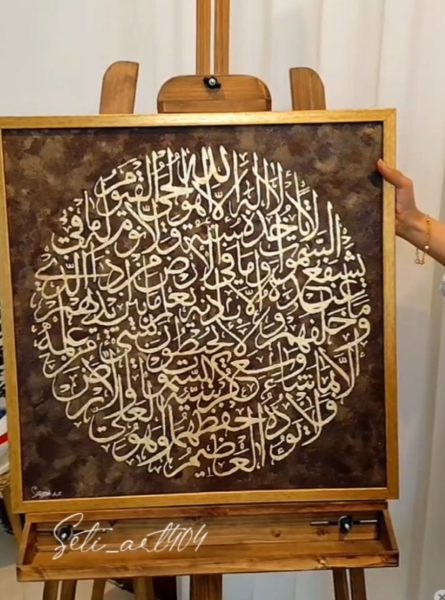 الله لا إله إلا هو الحي القيوم
لا تأخذه سنة ولا نوم له ما في
السموات وما في الأرض من ذا الذي
يشفع عنده إلا بإذنه يعلم ما بين أيديهم
وما خلفهم ولا يحيطون بشيء من علمه
إلا بما شاء وسع كرسيه السموات والأرض
ولا يؤده حفظهما وهو العلي
العظيم
Seti_art404